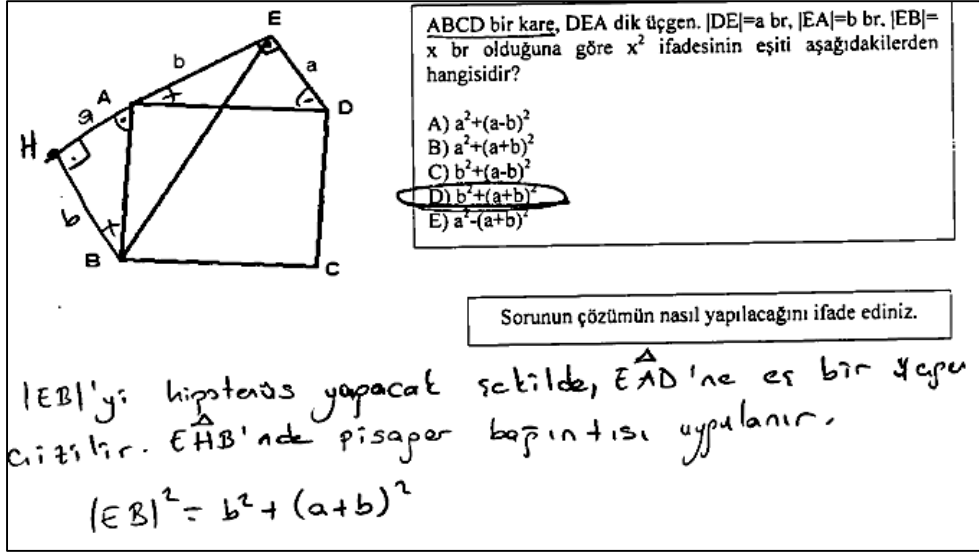 E
b
a
A
a
D
H
b
B
C
ABCD bir kare, DEA dik üçgen. |DE|=a br, |EA|=b br. |EB|=
x br olduğuna göre x² ifadesinin eşiti aşağıdakilerden
hangisidir?
A) a²+(a-b)²
B) a²+(a+b)²
C) b²+(a-b)²
D) b²+(a+b)²
E) a²-(a+b)²
Sorunun çözümün nasıl yapılacağını ifade ediniz.
|EB|'yi hipotenüs yapacak şekilde, EAD'ne eş bir üçgen
çizilir. EHB'nde pisagor bağıntısı uygulanır.
|EB|² = b² + (a+b)²